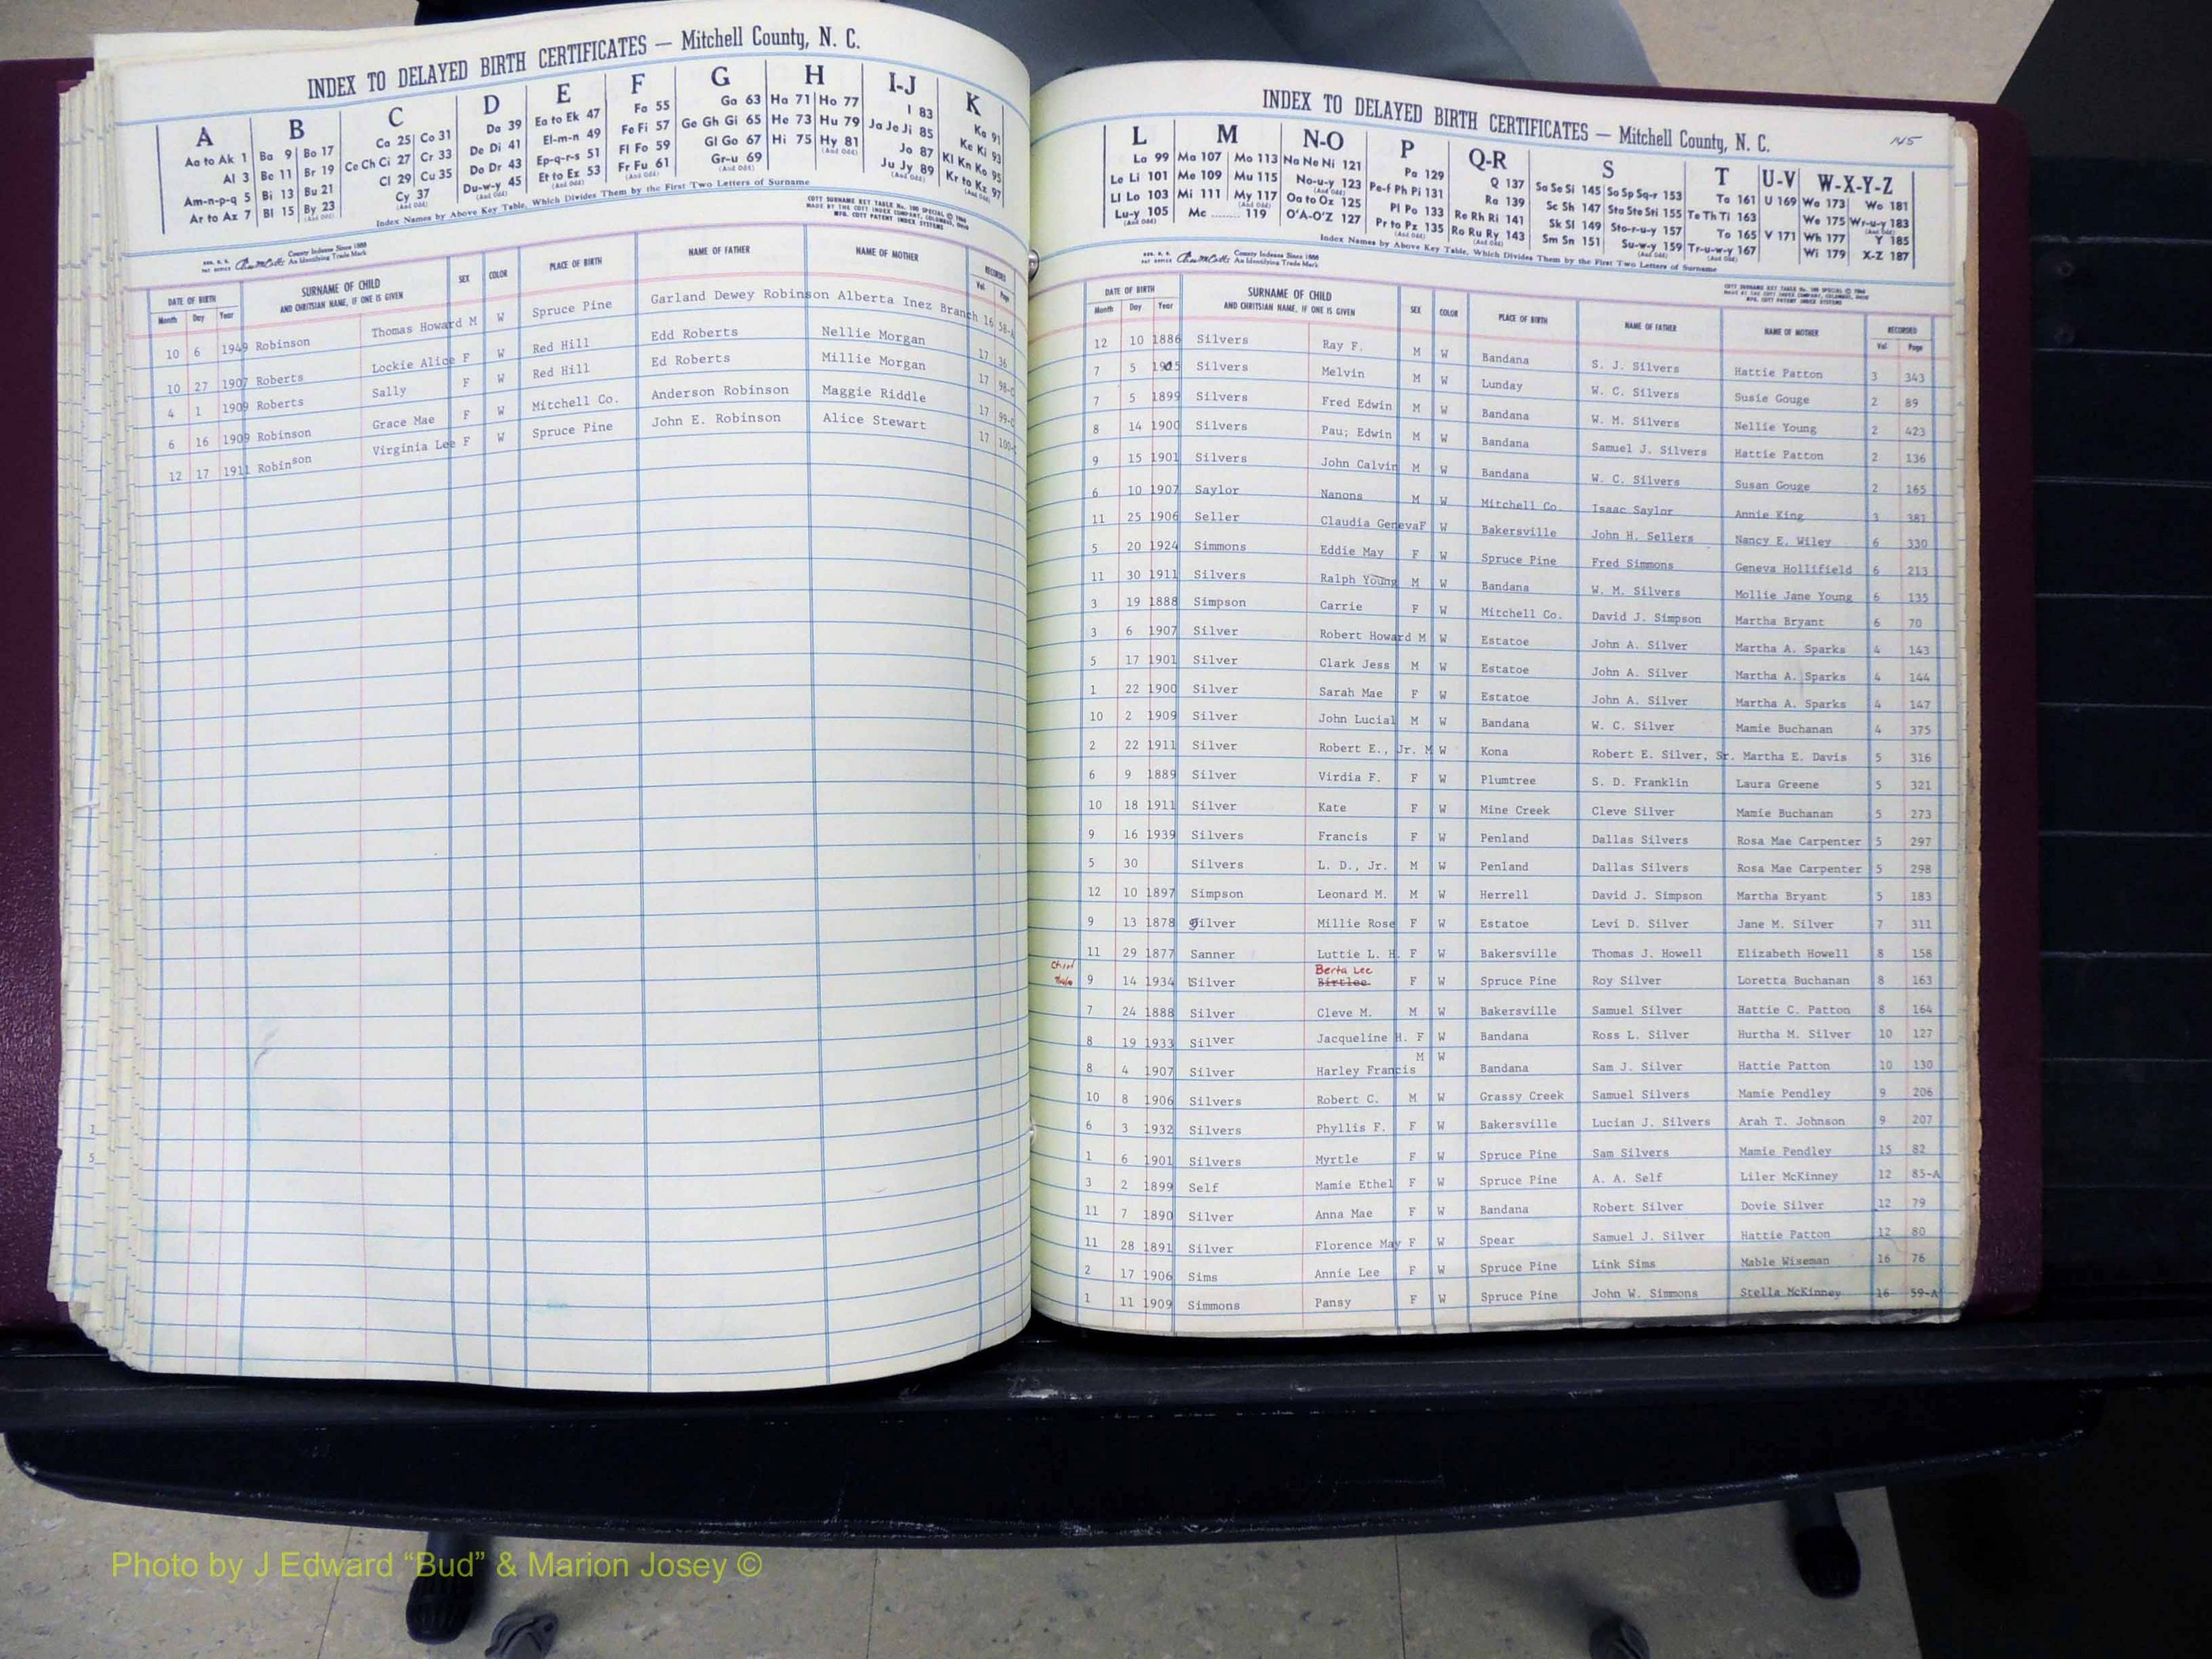 INDEX TO DELAYED BIRTH CERTIFICATES — Mitchell County, N. C.
A B C D E F G H I-J K
Aa to Ak 1 Ba 9 Bo 17 Ca 25 Co 31 Da 39 Ea to Ek 47 Fa 55 Ga 63 Ha 71 Ho 77 I 83 Ka 91
Al 3 Be 11 Br 19 Ce Ch Ci 27 Cr 33 De Di 41 El-m-n 49 Fe Fi 57 Ge Gh Gi 65 He 73 Hu 79 Ja Je Ji 85 Ke Ki 93
Am-n-p-q 5 Bi 13 Bu 21 Cl 29 Cu 35 Do Dr 43 Ep-q-r-s 51 Fl Fo 59 Gl Go 67 Hi 75 Hy 81 Jo 87 Kl Kn Ko 95
Ar to Az 7 Bl 15 By 23 Cy 37 Du-w-y 45 Et to Ez 53 Fr Fu 61 Gr-u 69 Ju Jy 89 Kr to Kz 97
Index Names by Above Key Table, Which Divides Them by the First Two Letters of Surname
COTT SURNAME KEY TABLE No. 100 SPECIAL © 1966
MADE BY THE COTT INDEX COMPANY, COLUMBUS, OHIO
MFG. COTT PATENT INDEX SYSTEMS
County Indexes Since 1888
An Identifying Trade Mark
DATE OF BIRTH SURNAME OF CHILD SEX COLOR PLACE OF BIRTH NAME OF FATHER NAME OF MOTHER RECORDED
Month Day Year AND CHRITSIAN NAME, IF ONE IS GIVEN Vol. Page
10 6 1949 Robinson Thomas Howard M W Spruce Pine Garland Dewey Robinson Alberta Inez Branch 16 58-A
10 27 1907 Roberts Lockie Alice F W Red Hill Edd Roberts Nellie Morgan 17 36
4 1 1909 Roberts Sally F W Red Hill Ed Roberts Millie Morgan 17 98-C
6 16 1909 Robinson Grace Mae F W Mitchell Co. Anderson Robinson Maggie Riddle 17 99-C
12 17 1911 Robinson Virginia Lee F W Spruce Pine John E. Robinson Alice Stewart 17 100-C
INDEX TO DELAYED BIRTH CERTIFICATES — Mitchell County, N. C.
145
L M N-O P Q-R S T U-V W-X-Y-Z
La 99 Ma 107 Mo 113 Na Ne Ni 121 Pa 129 Q 137 Sa Se Si 145 So Sp Sq-r 153 Ta 161 U 169 Wa 173 Wo 181
Le Li 101 Me 109 Mu 115 No-u-y 123 Pe-f Ph Pi 131 Ra 139 Sc Sh 147 Sta Ste Sti 155 Te Th Ti 163 We 175 Wr-u-y 183
Ll Lo 103 Mi 111 My 117 Oa to Oz 125 Pl Po 133 Re Rh Ri 141 Sk Sl 149 Sto-r-u-y 157 To 165 V 171 Wh 177 Y 185
Lu-y 105 Mc ........ 119 O'A-O'Z 127 Pr to Pz 135 Ro Ru Ry 143 Sm Sn 151 Su-w-y 159 Tr-u-w-y 167 Wi 179 X-Z 187
Index Names by Above Key Table, Which Divides Them by the First Two Letters of Surname
County Indexes Since 1888
An Identifying Trade Mark
COTT SURNAME KEY TABLE No. 100 SPECIAL © 1966
MADE BY THE COTT INDEX COMPANY, COLUMBUS, OHIO
MFG. COTT PATENT INDEX SYSTEMS
DATE OF BIRTH SURNAME OF CHILD SEX COLOR PLACE OF BIRTH NAME OF FATHER NAME OF MOTHER RECORDED
Month Day Year AND CHRITSIAN NAME, IF ONE IS GIVEN Vol. Page
12 10 1886 Silvers Ray F. M W Bandana S. J. Silvers Hattie Patton 3 343
7 5 1905 Silvers Melvin M W Lunday W. C. Silvers Susie Gouge 2 89
7 5 1899 Silvers Fred Edwin M W Bandana W. M. Silvers Nellie Young 2 423
8 14 1900 Silvers Pau; Edwin M W Bandana Samuel J. Silvers Hattie Patton 2 136
9 15 1901 Silvers John Calvin M W Bandana W. C. Silvers Susan Gouge 2 165
6 10 1907 Saylor Nanons M W Mitchell Co. Isaac Saylor Annie King 3 381
11 25 1906 Seller Claudia Geneva F W Bakersville John H. Sellers Nancy E. Wiley 6 330
5 20 1924 Simmons Eddie May F W Spruce Pine Fred Simmons Geneva Hollifield 6 213
11 30 1911 Silvers Ralph Young M W Bandana W. M. Silvers Mollie Jane Young 6 135
3 19 1888 Simpson Carrie F W Mitchell Co. David J. Simpson Martha Bryant 6 70
3 6 1907 Silver Robert Howard M W Estatoe John A. Silver Martha A. Sparks 4 143
5 17 1901 Silver Clark Jess M W Estatoe John A. Silver Martha A. Sparks 4 144
1 22 1900 Silver Sarah Mae F W Estatoe John A. Silver Martha A. Sparks 4 147
10 2 1909 Silver John Lucial M W Bandana W. C. Silver Mamie Buchanan 4 375
2 22 1911 Silver Robert E., Jr. M W Kona Robert E. Silver, Sr. Martha E. Davis 5 316
6 9 1889 Silver Virdia F. F W Plumtree S. D. Franklin Laura Greene 5 321
10 18 1911 Silver Kate F W Mine Creek Cleve Silver Mamie Buchanan 5 273
9 16 1939 Silvers Francis F W Penland Dallas Silvers Rosa Mae Carpenter 5 297
5 30 Silvers L. D., Jr. M W Penland Dallas Silvers Rosa Mae Carpenter 5 298
12 10 1897 Simpson Leonard M. M W Herrell David J. Simpson Martha Bryant 5 183
9 13 1878 Silver Millie Rose F W Estatoe Levi D. Silver Jane M. Silver 7 311
11 29 1877 Sanner Luttie L. H. F W Bakersville Thomas J. Howell Elizabeth Howell 8 158
Berta Lee
9 14 1934 Silver Birtlee F W Spruce Pine Roy Silver Loretta Buchanan 8 163
7 24 1888 Silver Cleve M. M W Bakersville Samuel Silver Hattie C. Patton 8 164
8 19 1933 Silver Jacqueline H. F W Bandana Ross L. Silver Hurtha M. Silver 10 127
8 4 1907 Silver Harley Francis M W Bandana Sam J. Silver Hattie Patton 10 130
10 8 1906 Silvers Robert C. M W Grassy Creek Samuel Silvers Mamie Pendley 9 206
6 3 1932 Silvers Phyllis F. F W Bakersville Lucian J. Silvers Arah T. Johnson 9 207
1 6 1901 Silvers Myrtle F W Spruce Pine Sam Silvers Mamie Pendley 15 82
3 2 1899 Self Mamie Ethel F W Spruce Pine A. A. Self Liler McKinney 12 85-A
11 7 1890 Silver Anna Mae F W Bandana Robert Silver Dovie Silver 12 79
11 28 1891 Silver Florence May F W Spear Samuel J. Silver Hattie Patton 12 80
2 17 1906 Sims Annie Lee F W Spruce Pine Link Sims Mable Wiseman 16 76
1 11 1909 Simmons Pansy F W Spruce Pine John W. Simmons Stella McKinney 16 59-A
Photo by J Edward “Bud” & Marion Josey ©